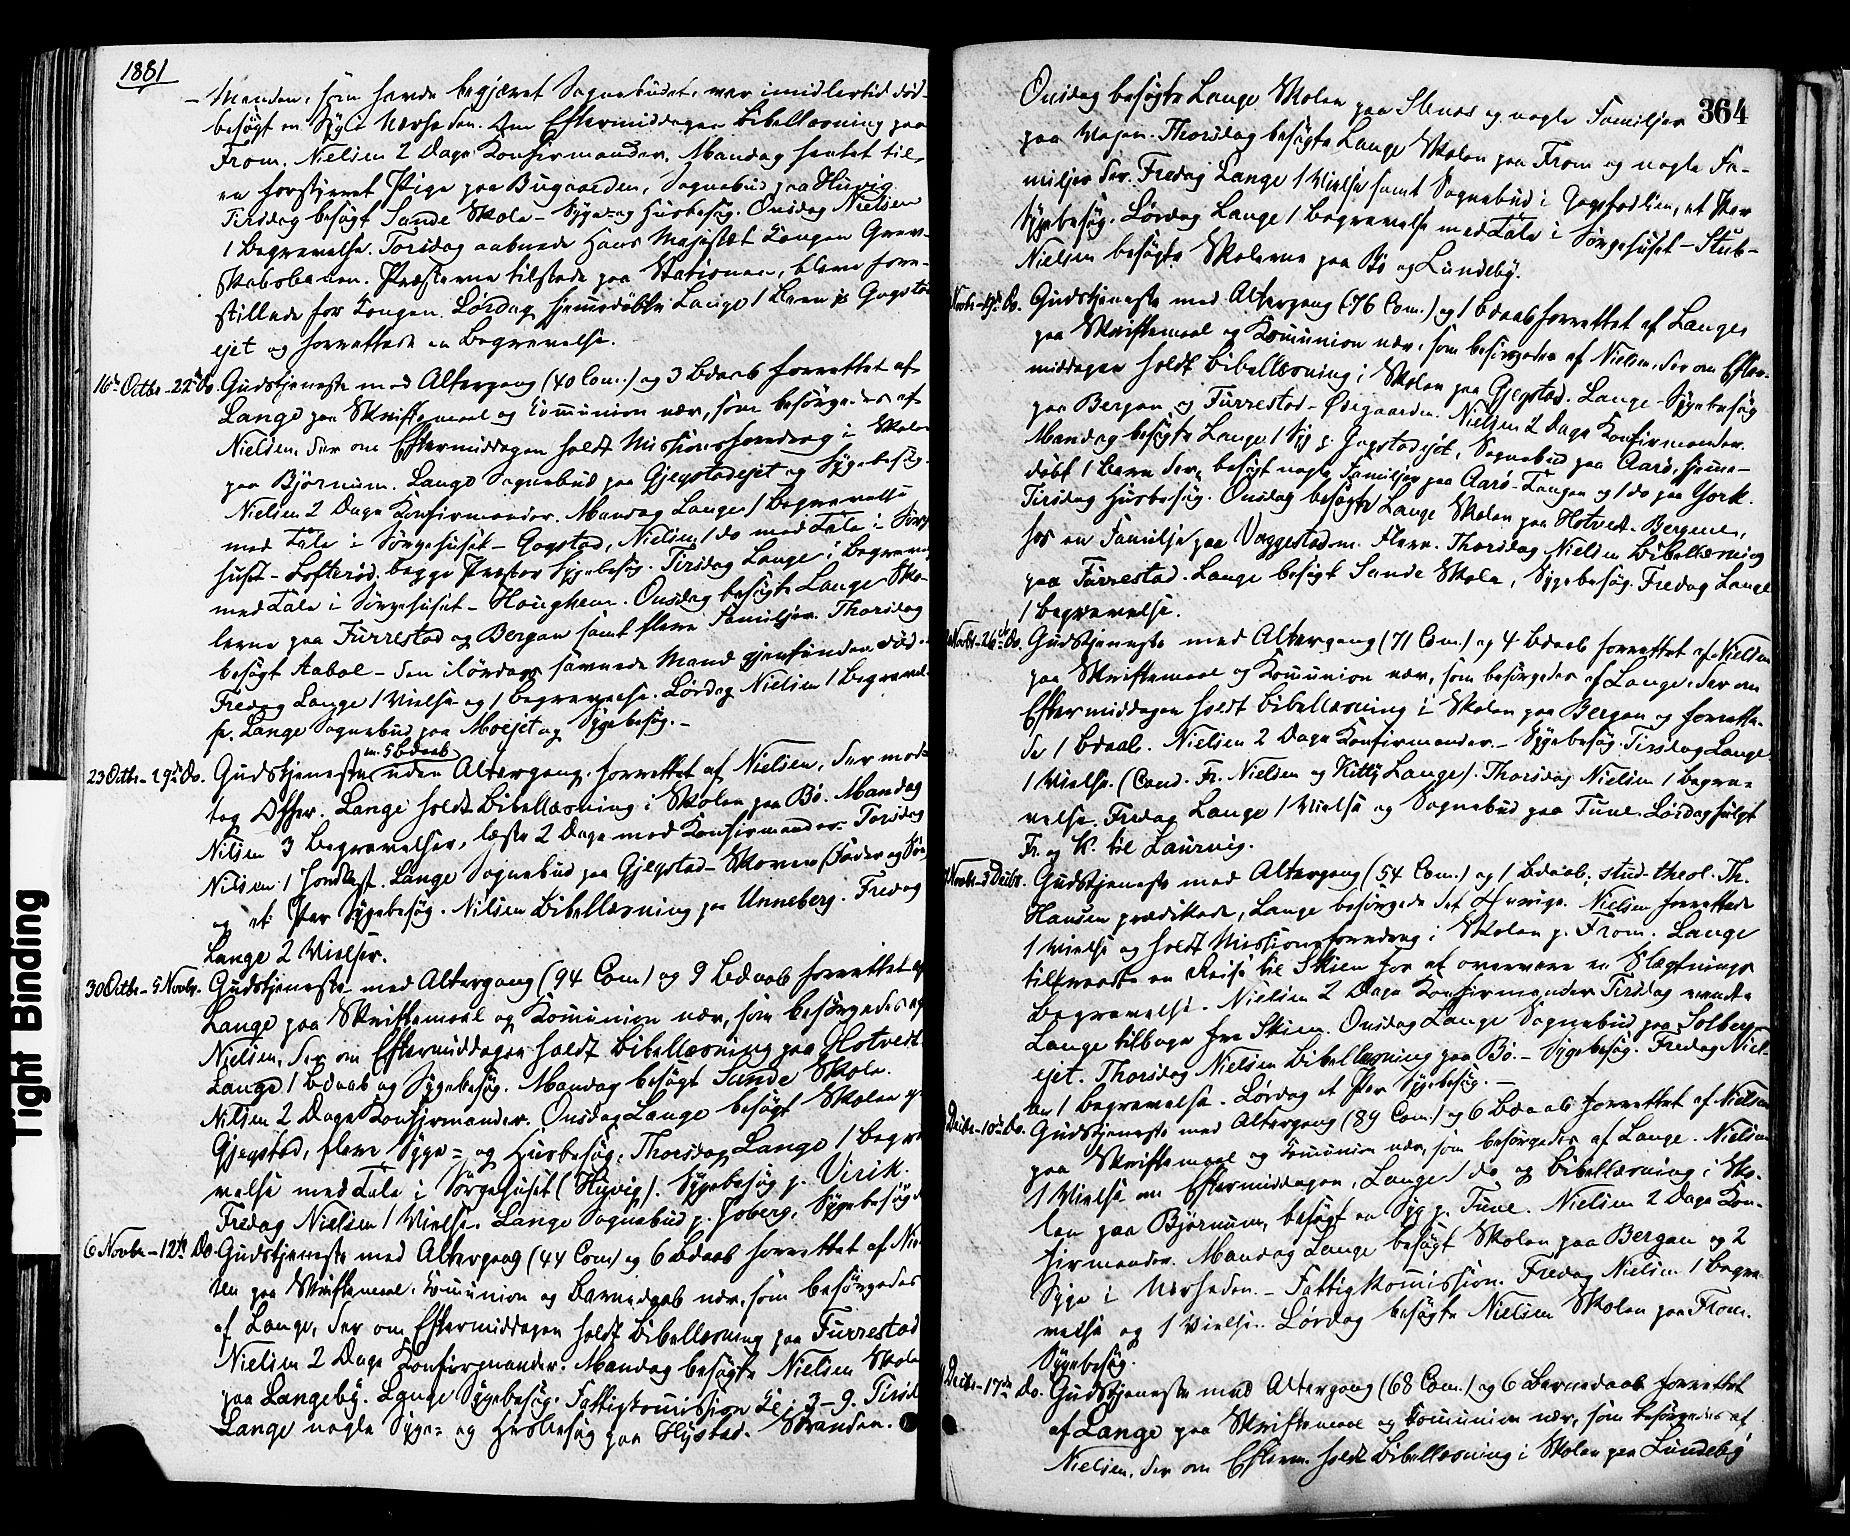 1881
Manden, som havde begjæret Sognebudet, var imidlertid død –
besøgt en Syg i Nærheden. Om Eftermiddagen Bibellæsning paa
From. Nielsen 2 Dage Konfirmander. Mandag hentet til
en forstyrret Pige paa Bugaarden, Sognebud paa Huvig
Tirsdag besøgt Sande Skole – Syge- og Husbesøg. Onsdag Nielsen
1 Begravelse. Torsdag aabnede Hans Majestæt Kongen Grev-
skabsbanen. Præsterne tilstede paa Stationen, bleve fore-
stillede for Kongen. Lørdag hjemmedøbte Lange 1 Barn p. Gogstad
ejet og forrettede en Begravelse.
16de Octbr – 22de Do. Gudstjeneste med Altergang (40 Com.) og 3 Bdaab forrettet af
Lange paa Skriftemaal og Communion nær, som besørgedes af
Nielsen, der om Eftermiddagen holdt Missionsforedrag i Skolen
paa Bjørnum. Lange Sognebud paa Gjegstadejet og Sygebesøg.
Nielsen 2 Dage Konfirmander. Mandag Lange 1 Begravelse
med Tale i Sørgehuset – Gogstad, Nielsen 1 do med Tale i Sørge
huset – Lofterød, begge Præster Sygebesøg. Tirsdag Lange 1 Begravelse
med Tale i Sørgehuset – Haughem. Onsdag besøgte Lange Sko-
lerne paa Furrestad og Bergan samt flere Familjer. Thorsdag
besøgt Aabol – den i Lørdags savnede Mand gjenfunden død.
Fredag Lange 1 Vielse og 1 Begravelse. Lørdag Nielsen 1 Begravel-
se. Lange Sognebud paa Moejet og Sygebesøg. –
m. 5 Bdaab
23 Octbr – 29de Do. Gudstjeneste uden Altergang, forrettet af Nielsen, der mod-
tog Offer. Lange holdt Bibellæsning i Skolen paa Bø. Mandag
Nilsen 3 Begravelser, læste 2 Dage med Konfirmander. Torsdag
Nilsen 1 Jordkast. Lange Sognebud paa Gjegstad-Skoven (Fader og Søn)
og et Par Sygebesøg. Nilsen Bibellæsning paa Unneberg. Fredag
Lange 2 Vielser.
30 Octbr – 5 Novbr. Gudstjeneste med Altergang (94 Com) og 9 Bdaab forrettet af
Lange paa Skriftemaal og Komunion nær, som besørgedes af
Nielsen, der om Eftermiddagen holdt Bibellæsning paa Hotvedt.
Lange 1 Bdaab og Sygebesøg. Mandag besøgt Sande Skole.
Nilsen 2 Dage Konfirmander. Onsdag Lange besøgt Skolen p.
Gjegstad, flere Syge- og Husbesøg. Thorsdag Lange 1 Begra
velse med Tale i Sørgehuset (Huvig). Sygebesøg p. Virik.
Fredag Nielsen 1 Vielse. Lange Sognebud p. Joberg, Sygebesøg
6 Novbr – 12te Do Gudstjeneste med Altergang (44 Com) og 6 Bdaab forrettet af Niel
sen paa Skriftemaal, Communion og Barnedaab nær, som besørgedes
af Lange, der om Eftermiddagen holdt Bibellæsning paa Furrestad
Nielsen 2 Dage Konfirmander. Mandag besøgte Nielsen Skolen
paa Langeby. Lange Sygebesøg. Fattigkommission Kl. 3–9. Tirsd
Lange nogle Syge- og Husbesøg paa Hystad-Stranden.
364
Onsdag besøgte Lange Skolen paa Stenes og nogle Familjer
paa Vejen. Thorsdag besøgte Lange Skolen paa From og nogle Fa-
miljer der. Fredag Lange 1 Vielse samt Sognebud i Gogstadlien, et Par
Sygebesøg. Lørdag Lange 1 Begravelse med Tale i Sørgehuset – Stub-
Nielsen besøgte Skolerne paa Bø og Lundeby.
Novbr – 19de Do. Gudstjeneste med Altergang (76 Com.) og 1 Bdaab forrettet af Lange,
paa Skriftemaal og Komunion nær, som besørgedes af Nielsen, der om Efter-
middagen holdt Bibellæsning i Skolen paa Gjegstad. Lange – Sygebesøg
paa Bergan og Furrestad-Ødegaarden. Nielsen 2 Dage Konfirmander.
Mandag besøgte Lange 1 Syg p. Gogstadejet, Sognebud paa Aarø, hjemme-
døbt 1 Barn der, besøgt nogle Familjer paa Aarø-Tangen og 1 do paa York.
Tirsdag Husbesøg. Onsdag besøgte Lange Skolen paa Hotvedt-Bergene,
hos en Familje paa Vaggestad m. flere. Thorsdag Nielsen Bibellæsning
paa Furrestad. Lange besøgt Sande Skole, Sygebesøg. Fredag Lange
1 Begravelse.
Novbr – 26de Do. Gudstjeneste med Altergang (71 Com.) og 4 Bdaab forrettet af Nielsen
paa Skriftemaal og Komunion nær, som besørgedes af Lange, der om
Eftermiddagen holdt Bibellæsning i Skolen paa Bergan og forrette-
de 1 Bdaab. Nielsen 2 Dage Konfirmander. – Sygebesøg. Tirsdag Lange
1 Vielse (Cand. Fr. Nielsen og Kitty Lange). Thorsdag Nielsen 1 Begra-
velse. Fredag Lange 1 Vielse og Sognebud paa Tune. Lørdag fulgt
Fr. og K. til Laurvig.
Novbr – 3 Decbr. Gudstjeneste med Altergang (54 Com.) og 1 Bdaab; stud. theol. Th.
Hansen prædikede, Lange besørgede det Øvrige. Nielsen forrettede
1 Vielse og holdt Missionsforedrag i Skolen p. From. Lange
tiltraadte en Reise til Skien for at overvære en Slægtnings
Begravelse. Nielsen 2 Dage Konfirmander. Tirsdag vendte
Lange tilbage fra Skien. Onsdag Lange Sognebud paa Solberg-
ejet. Thorsdag Nielsen Bibellæsning paa Bø. – Sygebesøg. Fredag Niel-
sen 1 Begravelse. Lørdag et Par Sygebesøg. –
Decbr – 10de Do. Gudstjeneste med Altergang (89 Com.) og 6 Bdaab forrettet af Nielsen
paa Skriftemaal og Komunion nær, som besørgedes af Lange. Nielsen
1 Vielse om Eftermiddagen, Lange 1 do og Bibellæsning i Sko-
len paa Bjørnum, besøgt en Syg p. Tune. Nielsen 2 Dage Kon-
firmander. Mandag Lange besøgt Skolen paa Bergan og 2
Syge i Nærheden. – Fattigkommission. Fredag Nielsen 1 Begra-
velse og 1 Vielse. Lørdag besøgte Nielsen Skolen paa From.
Sygebesøg.
Decbr – 17de Do. Gudstjeneste med Altergang (68 Com.) og 6 Barnedaab forrettet
af Lange paa Skriftemaal og Communion nær, som besørgedes af
Nielsen, der om Efterm. holdt Bibellæsning i Skolen paa Lundeby
Tight Binding